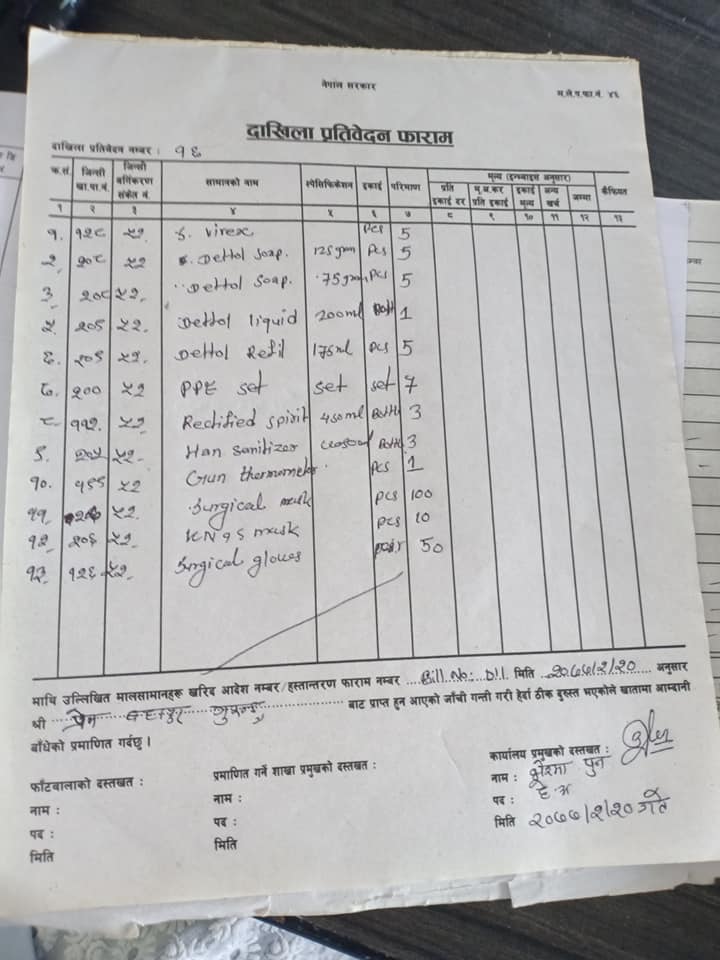 नेपाल सरकार
म.ले.प.फा.नं. ४६
दाखिला प्रतिवेदन फाराम
दाखिला प्रतिवेदन नम्बर : १६
क्र.सं. जिन्सी खा.पा.नं. जिन्सी वर्गिकरण संकेत नं. सामानको नाम स्पेसिफिकेशन इकाई परिमाण मूल्य (इन्भ्वाइस अनुसार) कैफियत
प्रति इकाई दर मू.अ.कर प्रति इकाई इकाई मूल्य अन्य खर्च जम्मा
१ २ ३ ४ ५ ६ ७ ८ ९ १० ११ १२ १३
१. १२८ ५२ Virex Pcs 5
२. २०८ ५२ Dettol Soap. 125 gram Pcs 5
३. २०८ ५२. " Dettol Soap. 75 gram Pcs 5
५. २०५ ५२. Dettol liquid 200ml Bott 1
६. २०५ ५२. Dettol Refil 175ml Pcs 5
७. २०० ५२ PPE set set set 7
८ ११२. ५२ Rectified spirit 450ml Bottl 3
९. ५२. Han sanitizer Bottl 3
१०. १९९ ५२ Gun thermometer Pcs 1
११. ५२. Surgical mask Pcs 100
१२. २०६ ५२. KN95 mask Pcs 10
१३. १२६ ५२. Surgical gloves pair 50
माथि उल्लिखित मालसामानहरू खरिद आदेश नम्बर/हस्तान्तरण फाराम नम्बर Bill.No: 011. मिति २०७७/२/२० अनुसार
श्री प्रेम बहादुर बाट प्राप्त हुन आएको जाँची गन्ती गरी हेर्दा ठीक दुरुस्त भएकोले खातामा आम्दानी
बाँधेको प्रमाणित गर्दछु ।
फाँटवालाको दस्तखत : प्रमाणित गर्ने शाखा प्रमुखको दस्तखत : कार्यालय प्रमुखको दस्तखत :
नाम : नाम : नाम : पुन
पद : पद : पद : हे.अ
मिति मिति मिति २०७७/२/२० गते